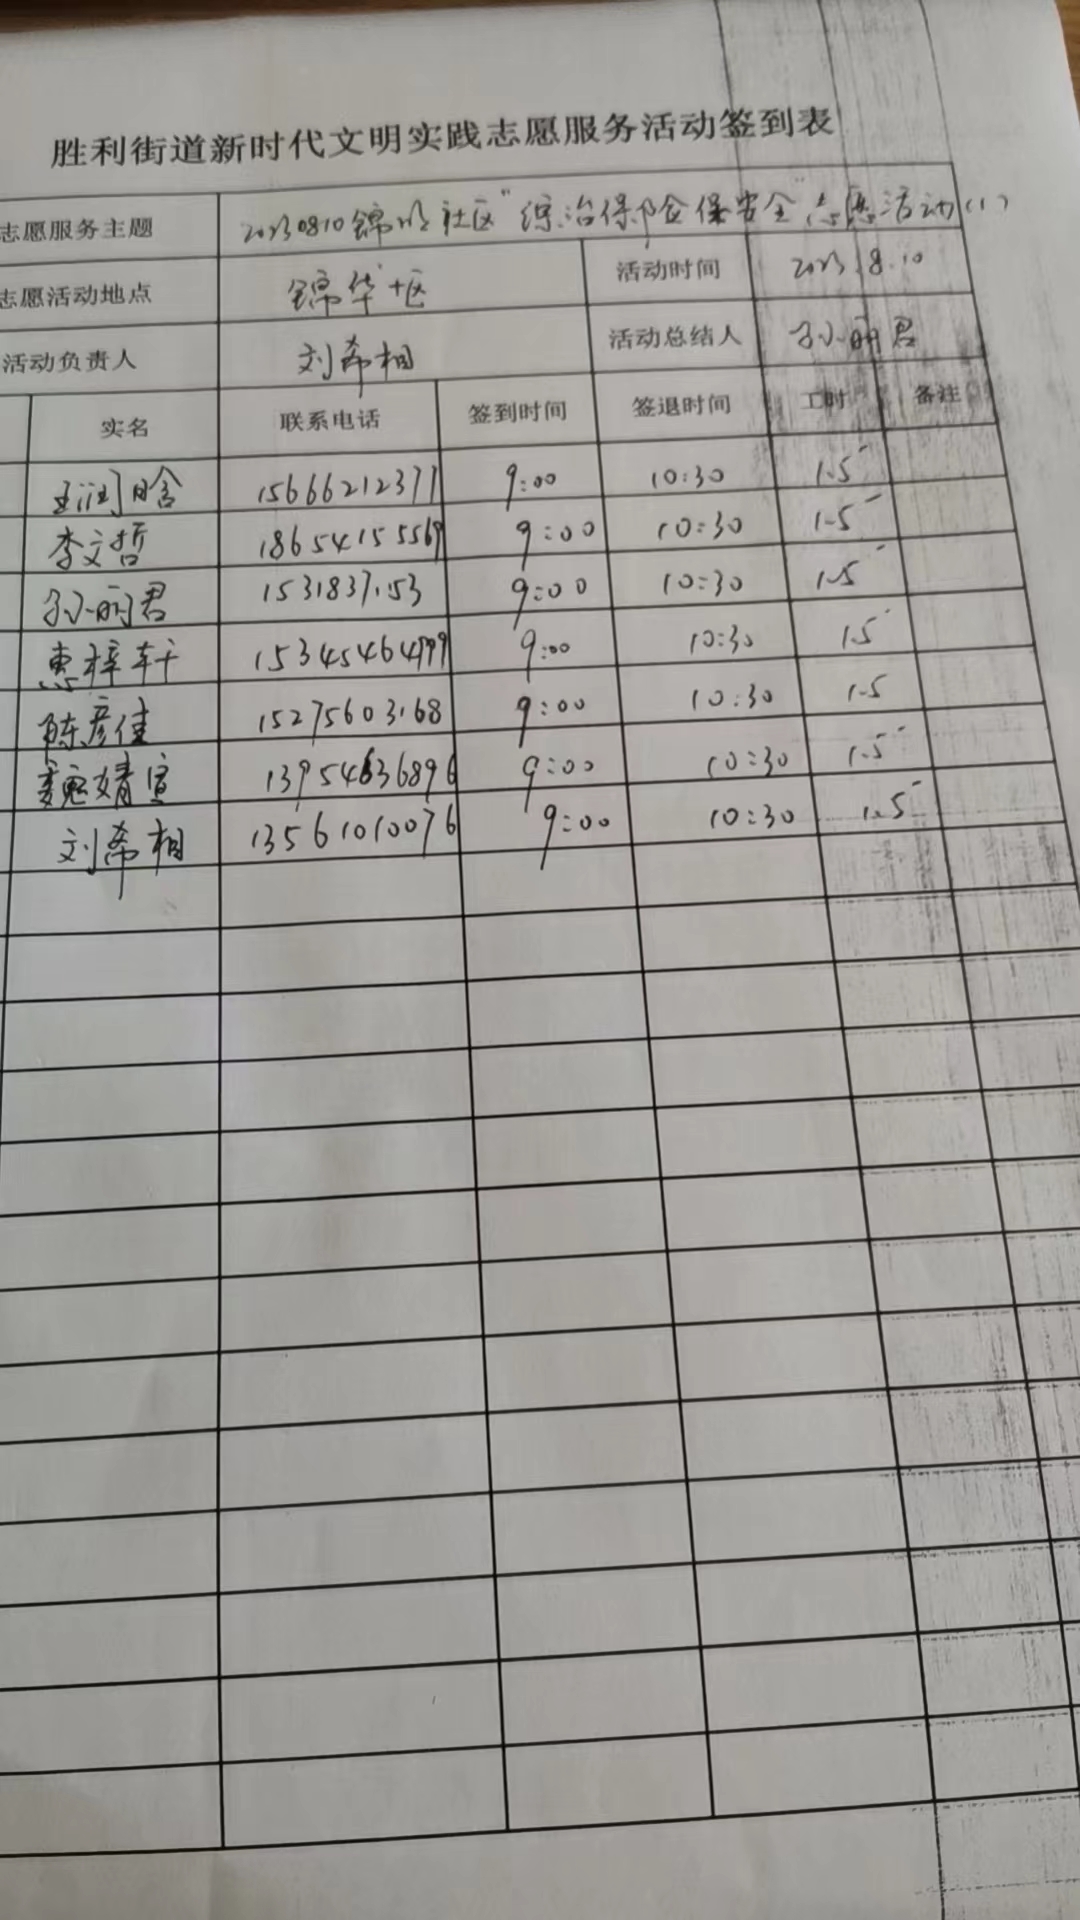 胜利街道新时代文明实践志愿服务活动签到表
志愿服务主题 20230810锦华社区"综治保险金保安全"志愿活动(1)
志愿活动地点 锦华十区 活动时间 2023.8.10
活动负责人 刘希相 活动总结人 孙丽君
实名 联系电话 签到时间 签退时间 工时 备注
15666212377 9:00 10:30 1.5
李文哲 18654155569 9:00 10:30 1.5
孙丽君 1531837153 9:00 10:30 1.5
惠梓轩 15345464999 9:00 10:30 1.5
陈彦佳 15275603168 9:00 10:30 1.5
魏婧宣 13954636896 9:00 10:30 1.5
刘希相 13561010076 9:00 10:30 1.5